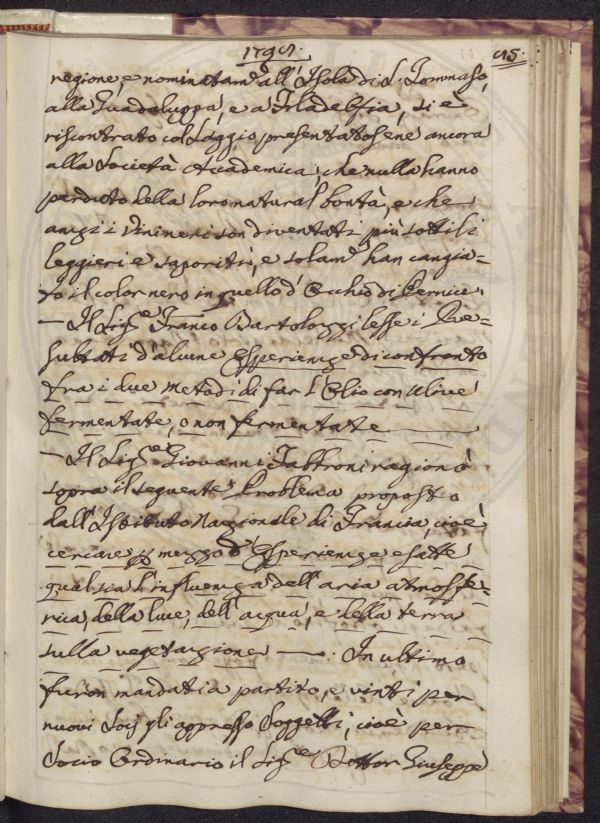 1797. 95.
regione, e nominatam.e all'Isola di S. Tommaso,
alla Guadaluppa, e a Filadelfia, si è
riscontrato col Saggio presentatosene ancora
alla Società Accademica, che nulla hanno
perduto della loro natural bontà, e che
anzi i Vini neri son diventati più sottili
leggieri e saporiti, e solam.e han cangia=
to il color nero in quello d'Occhio di Pernice.
— Il Sig.e Franco Bartolozzi lesse i Re=
sultati d'alcune Esperienze di confronto
fra i due metodi di far l'Olio con Ulive
fermentate, o non fermentate
— Il Sig.e Giovanni Fabbroni ragionò
sopra il seguente Problema proposto
dall'Istituto Nazionale di Francia, cioè
cercare p mezzo d'Esperienze esatte
qual sia l'influenza dell'aria atmosfe=
rica, della luce, dell'acqua, e della terra
sulla vegetazione —. In ultimo
furon mandati a partito, e vinti per
nuovi Socj gli appresso Soggetti, cioè per
Socio Ordinario il Sig.e Dottor Giuseppe